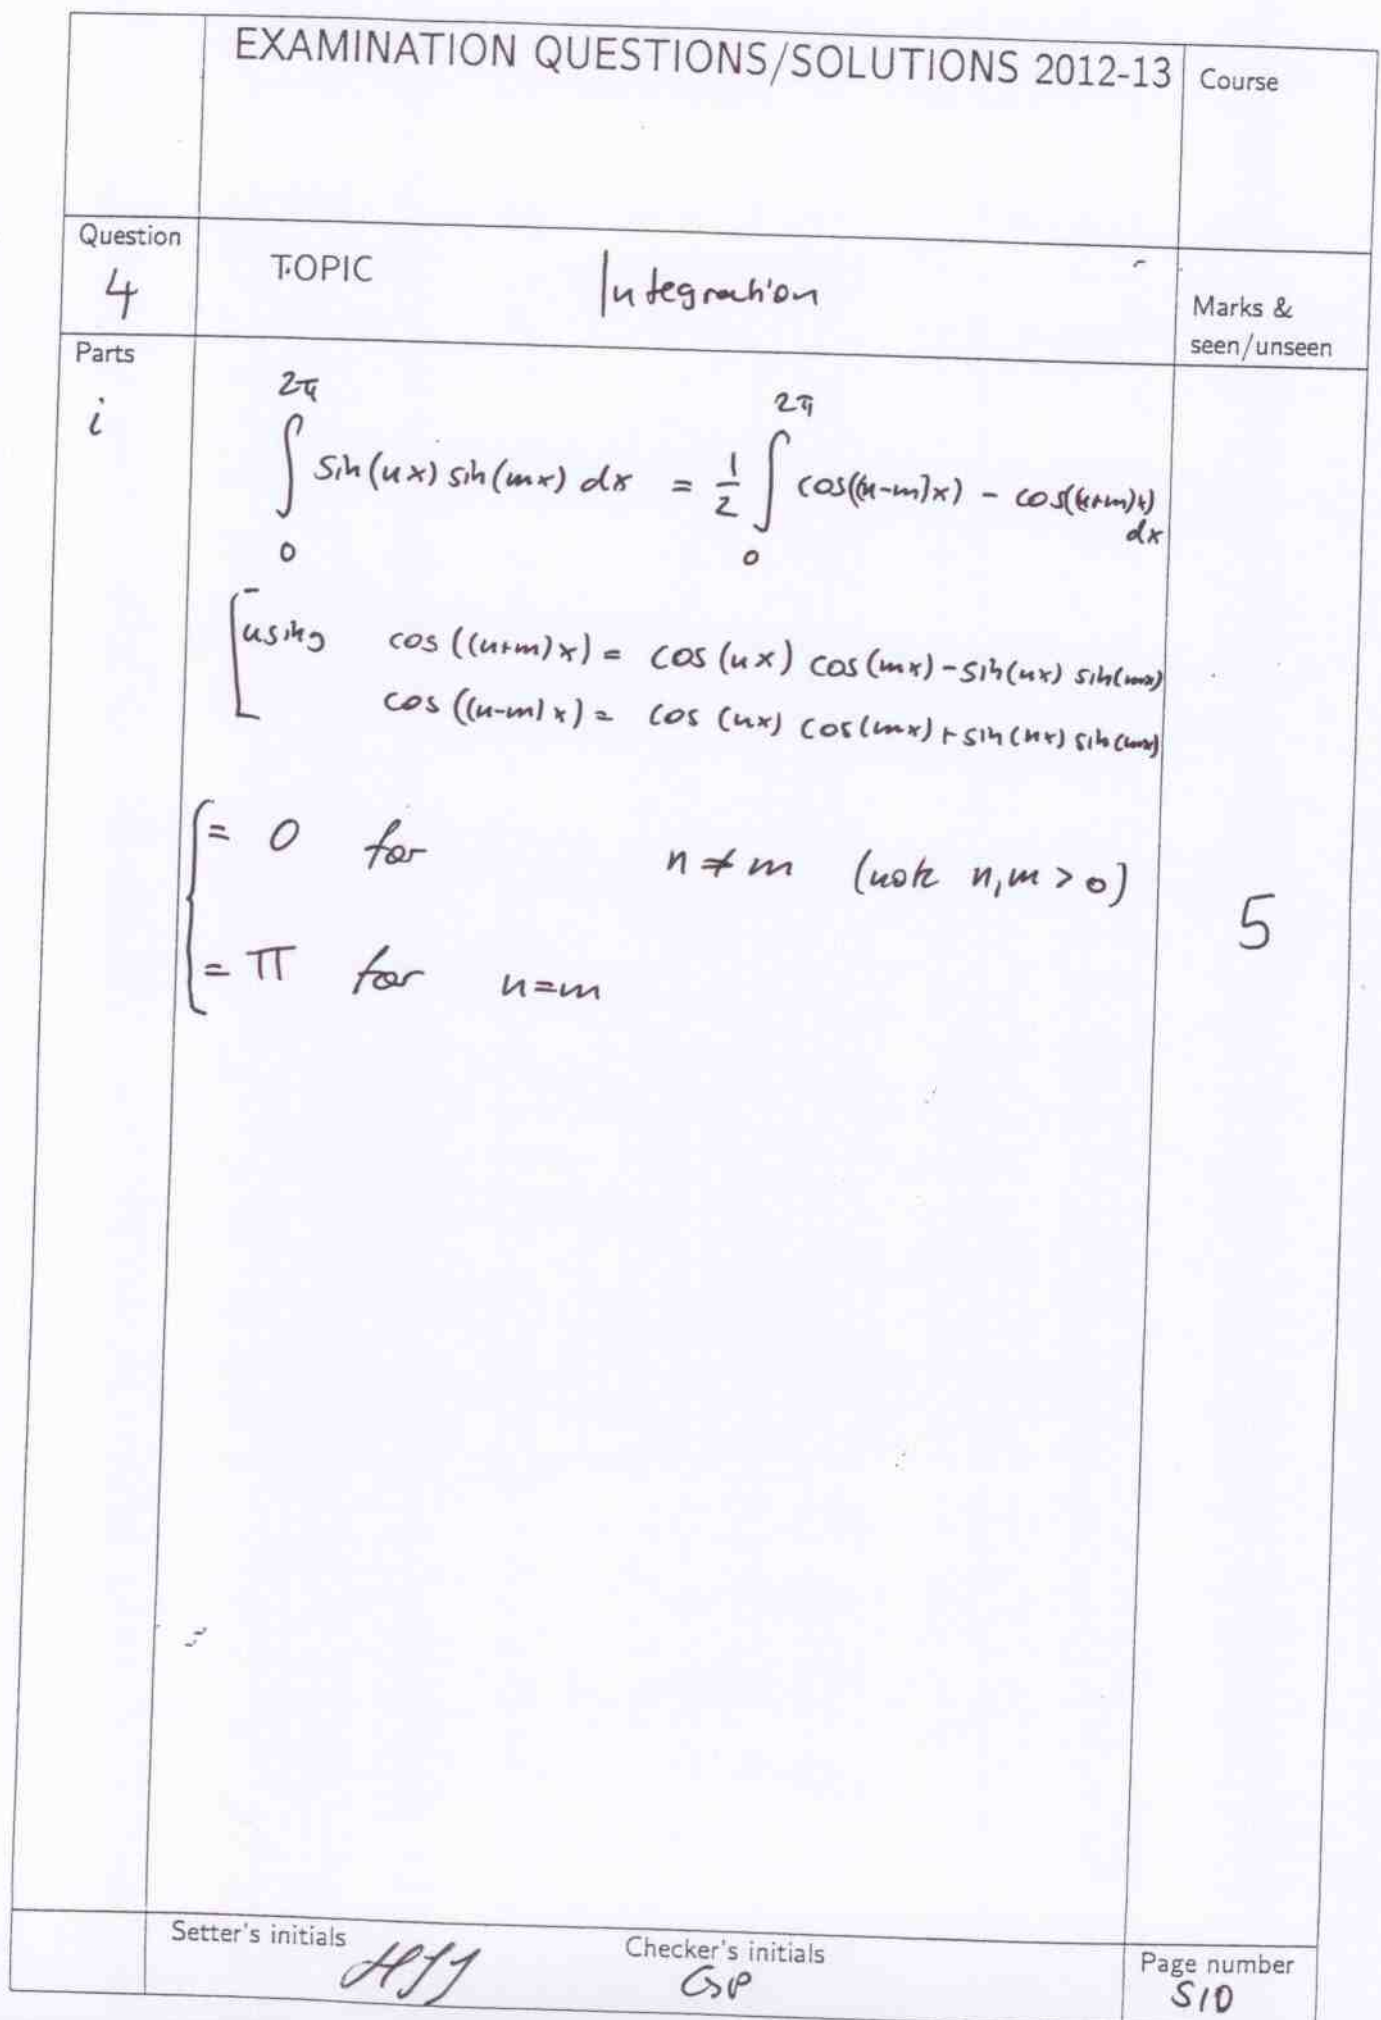 EXAMINATION QUESTIONS/SOLUTIONS 2012-13
Course
Question
4
TOPIC
Integration
Marks &
seen/unseen
Parts
i
∫₀^{2π} sin(nx) sin(mx) dx = 1/2 ∫₀^{2π} cos((n-m)x) - cos((n+m)x) dx
[using cos((n+m)x) = cos(nx) cos(mx) - sin(nx) sin(mx)
cos((n-m)x) = cos(nx) cos(mx) + sin(nx) sin(mx)
{= 0 for n ≠ m (note n,m > 0)
5
= π for n=m
Setter's initials
Checker's initials
GP
Page number
S10